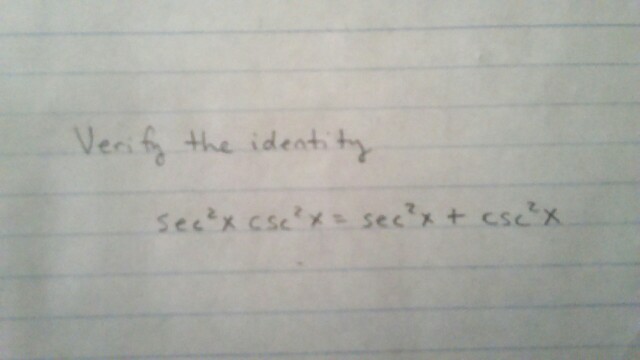 Verify the identity
sec²x csc²x = sec²x + csc²x